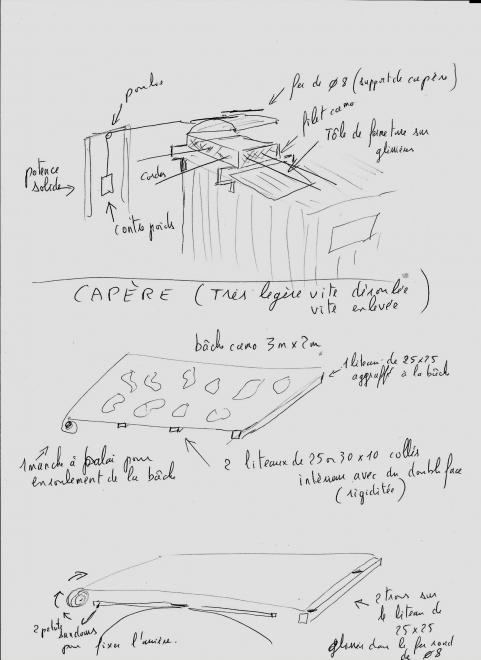 poulie
fer de ø 8 (support de capère)
filet camo
Tôle de fermeture sur
glissière
potence
solide
cordes
contre poids
CAPÈRE ( Très legère vite déroulée )
vite enlevée
bâche camo 3m x 2m
1 liteau de 25x25
aggraffé à la bâche
1 manche à balai pour
enroulement de la bâche
2 liteaux de 25 ou 30 x 10 collés
intérieur avec du double face
(rigiditée)
2 petits sandows
pour fixer l'arrière.
2 trous sur
le liteau de
25 x 25
glissés dans le fer rond
de ø8